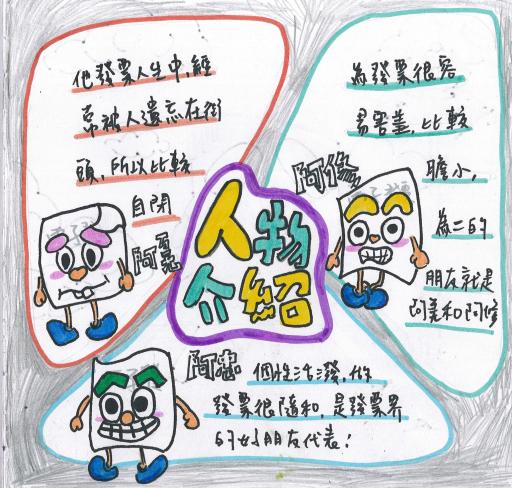 人物
介紹
他發票人生中,經
常被人遺忘在街
頭,所以比較
自閉
為發票很容
易害羞,比較
膽小,
為二的
朋友就是
阿忠
個性活潑,他
發票很隨和,是發票界
的好朋友代表!